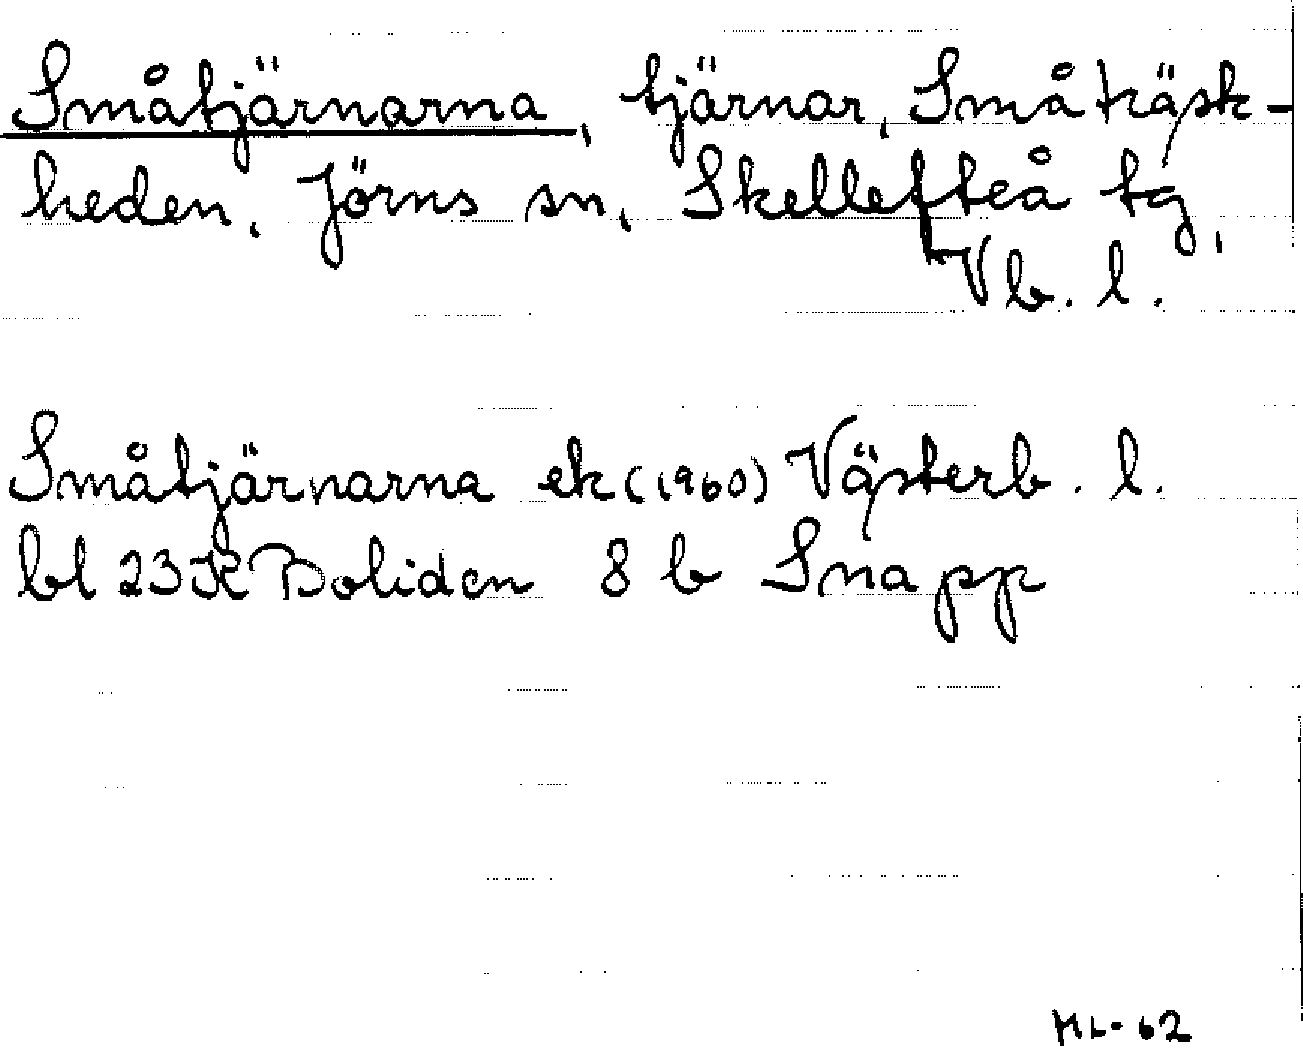 Småtjärnarna, tjärnar, Småträsk-
heden, Jörns sn, Skellefteå tg,
Vb. l.
Småtjärnarna ek (1960) Västerb. l.
bl 23K Boliden 8 b Snapp
ML-62